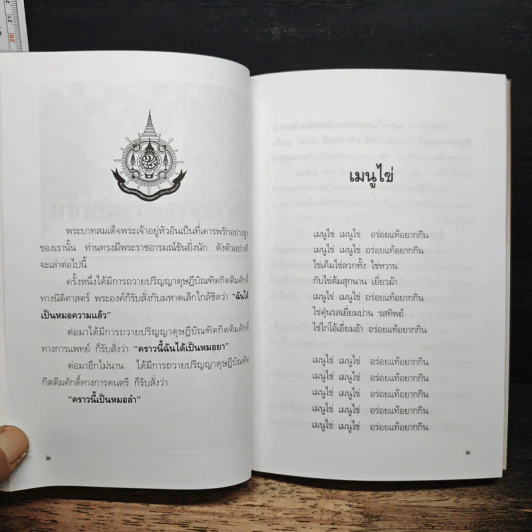 พระบาทสมเด็จพระเจ้าอยู่หัวอันเป็นที่เคารพรักอย่างสูง
ของเรานั้น ท่านทรงมีพระราชอารมณ์ขันยิ่งนัก ดังตัวอย่างที่
จะเล่าต่อไปนี้
ครั้งหนึ่งได้มีการถวายปริญญาดุษฎีบัณฑิตกิตติมศักดิ์
ทางนิติศาสตร์ พระองค์ก็รับสั่งกับมหาดเล็กใกล้ชิดว่า "ฉันได้
เป็นหมอความแล้ว"
ต่อมาได้มีการถวายปริญญาดุษฎีบัณฑิตกิตติมศักดิ์
ทางการแพทย์ ก็รับสั่งว่า "คราวนี้ฉันได้เป็นหมอยา"
ต่อมาอีกไม่นาน ได้มีการถวายปริญญาดุษฎีบัณฑิต
กิตติมศักดิ์ทางการดนตรี ก็รับสั่งว่า
"คราวนี้เป็นหมอลำ"
๒
เมนูไข่
เมนูไข่ เมนูไข่ อร่อยแท้อยากกิน
เมนูไข่ เมนูไข่ อร่อยแท้อยากกิน
ไข่เค็มไข่ลวกทั้ง ไข่หวาน
กับไข่ต้มสุกนาน เยี่ยวม้า
เมนูไข่ เมนูไข่ อร่อยแท้อยากกิน
ไข่ตุ๋นรสเยี่ยมปาน รสทิพย์
ไข่ไก่โอ้เอี่ยมอ้า อร่อยแท้อยากกิน
เมนูไข่ เมนูไข่ อร่อยแท้อยากกิน
เมนูไข่ เมนูไข่ อร่อยแท้อยากกิน
เมนูไข่ เมนูไข่ อร่อยแท้อยากกิน
เมนูไข่ เมนูไข่ อร่อยแท้อยากกิน
เมนูไข่ เมนูไข่ อร่อยแท้อยากกิน
๓